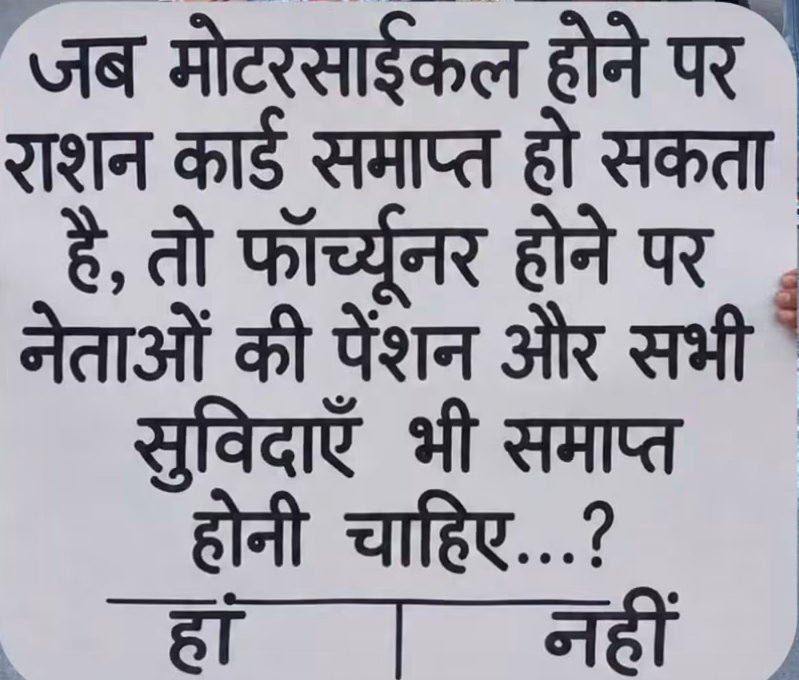 जब मोटरसाईकल होने पर
राशन कार्ड समाप्त हो सकता
है, तो फॉर्च्यूनर होने पर
नेताओं की पेंशन और सभी
सुविदाएँ भी समाप्त
होनी चाहिए...?
हां | नहीं